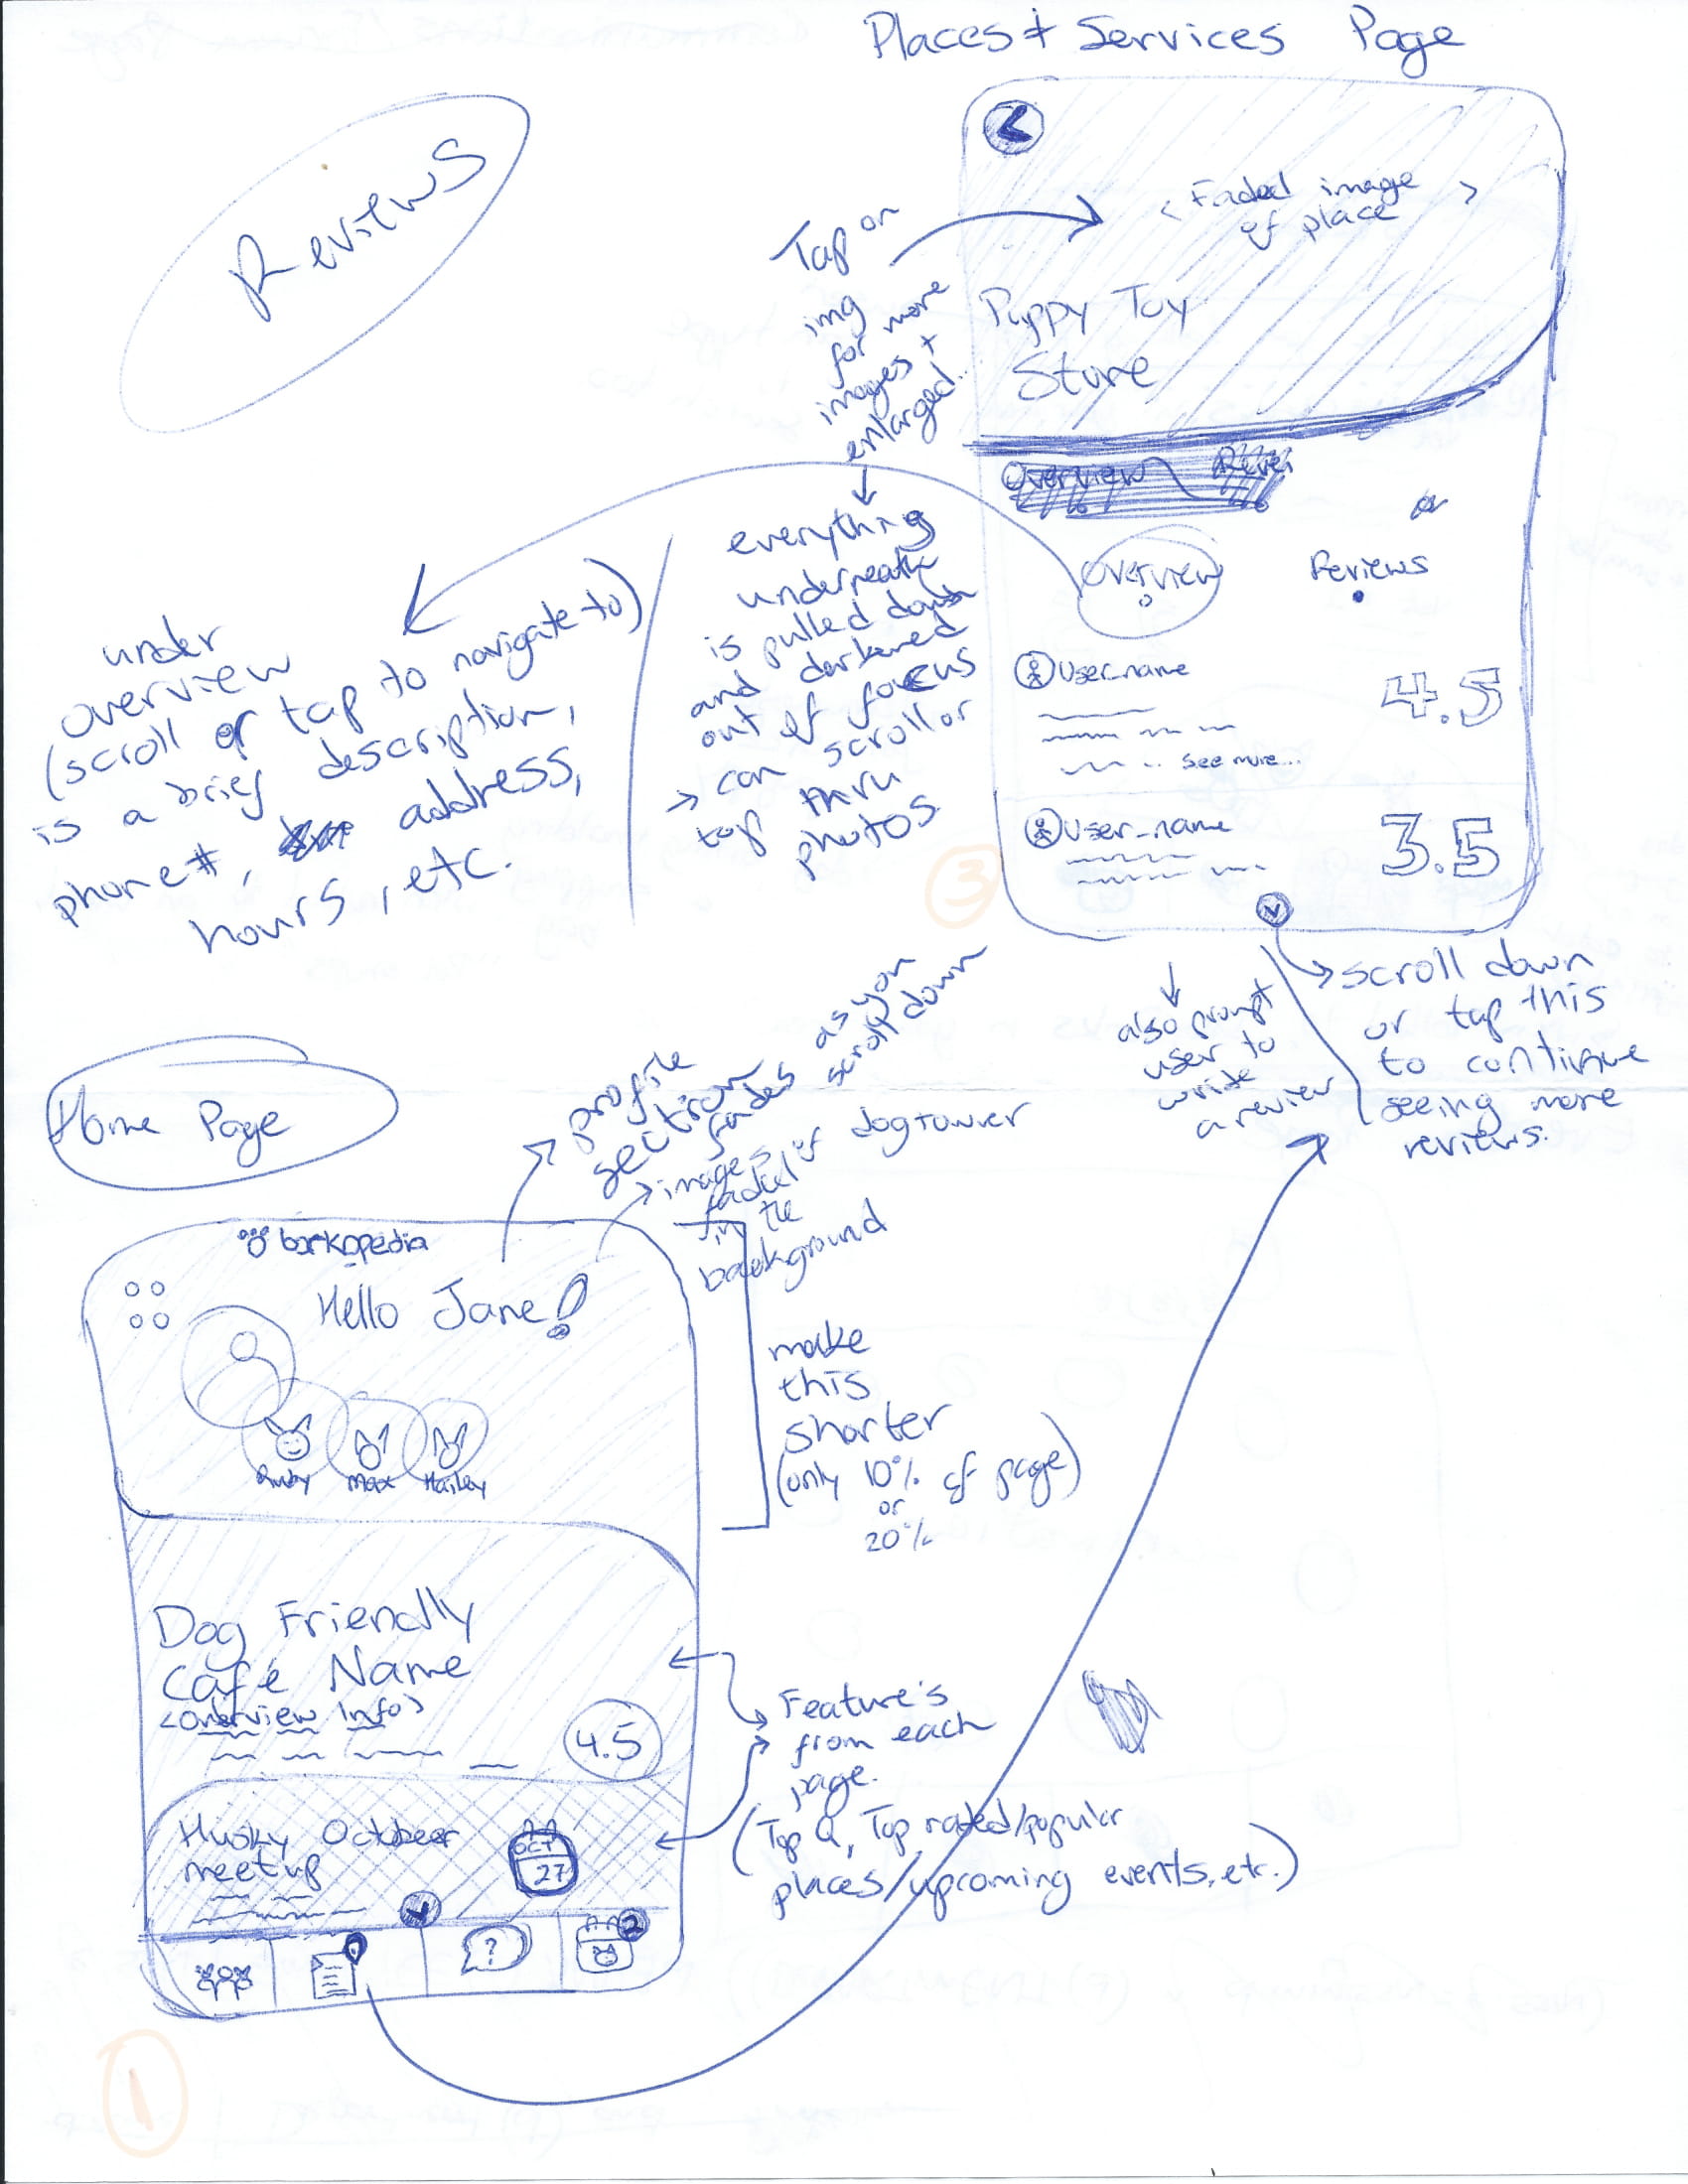 Places + Services Page
Reviews
< Faded image >
of place
Puppy Toy
Store
Tap on
img
for more
images +
enlarged..
everything
underneath
is pulled down
and darkened
out of focus
→ can scroll or
tap thru
photos
Overview
or
Overview
Reviews
under
overview
(scroll or tap to navigate to)
is a brief description,
phone #, address,
hours, etc.
User_name
4.5
see more...
User_name
3.5
3
scroll down
or tap this
to continue
seeing more
reviews.
also prompt
user to
write
a review
Home Page
profile
section
fades as you
scroll down
images of dog + owner
faded
in the
background
barkopedia
Hello Jane!
Ruby Max Hailey
make
this
shorter
(only 10% of page)
or
20%
Dog Friendly
Café Name
<overview Info>
4.5
Feature's
from each
page.
(Top Q, Top rated/popular
places/upcoming events, etc.)
Husky October
meetup
OCT
27
?
2
1